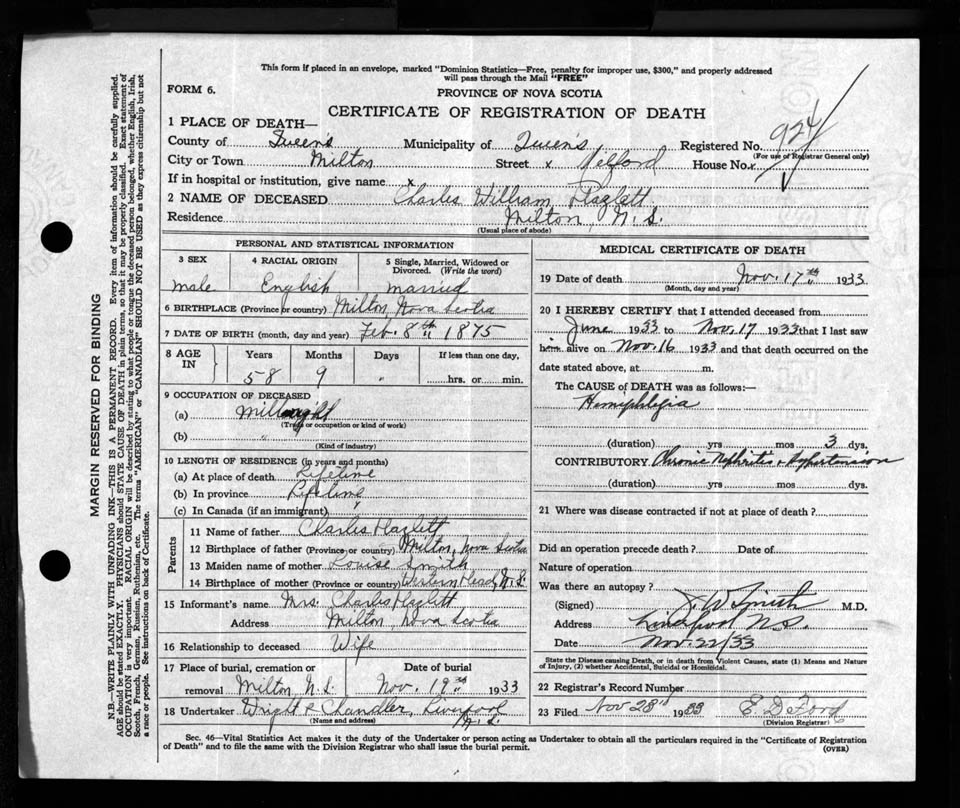 This form if placed in an envelope, marked "Dominion Statistics—Free, penalty for improper use, $300," and properly addressed
will pass through the Mail "FREE"
FORM 6.
PROVINCE OF NOVA SCOTIA
CERTIFICATE OF REGISTRATION OF DEATH
1 PLACE OF DEATH—
County of Queen's Municipality of Queen's Registered No. 924
(For use of Registrar General only)
City or Town Milton Street x House No. x
If in hospital or institution, give name x
2 NAME OF DECEASED Charles William Hazlett
Residence Milton, N.S.
(Usual place of abode)
PERSONAL AND STATISTICAL INFORMATION
3 SEX 4 RACIAL ORIGIN 5 Single, Married, Widowed or
Divorced. (Write the word)
male English married
6 BIRTHPLACE (Province or country) Milton, Nova Scotia
7 DATE OF BIRTH (month, day and year) Feb. 8th 1875
8 AGE IN Years Months Days If less than one day,
58 9 " hrs. or min.
9 OCCUPATION OF DECEASED
(a) Millwright
(Trade or occupation or kind of work)
(b) "
(Kind of industry)
10 LENGTH OF RESIDENCE (in years and months)
(a) At place of death Lifetime
(b) In province Lifetime
(c) In Canada (if an immigrant)
Parents
11 Name of father Charles Hazlett
12 Birthplace of father (Province or country) Milton, Nova Scotia
13 Maiden name of mother Louise Smith
14 Birthplace of mother (Province or country) Western Head, N.S.
15 Informant's name Mrs. Charles Hazlett
Address Milton Nova Scotia
16 Relationship to deceased Wife
17 Place of burial, cremation or Date of burial
removal Milton N.S. Nov. 19th 1933
18 Undertaker Wright & Chandler, Liverpool
N.S.
(Name and address)
MEDICAL CERTIFICATE OF DEATH
19 Date of death Nov. 17th 1933
(Month, day and year)
20 I HEREBY CERTIFY that I attended deceased from
June 1933 to Nov. 17 1933 that I last saw
him alive on Nov. 16 1933 and that death occurred on the
date stated above, at m.
The CAUSE of DEATH was as follows:—
Hemiphlegia
(duration) yrs mos 3 dys.
CONTRIBUTORY Chronic Nephritis & Hypertension
(duration) yrs. mos dys.
21 Where was disease contracted if not at place of death?
Did an operation precede death? Date of
Nature of operation
Was there an autopsy?
(Signed) J. W. Smith M.D.
Address Liverpool N.S.
Date Nov. 22/33
State the Disease causing Death, or in death from Violent Causes, state (1) Means and Nature
of Injury, (2) whether Accidental, Suicidal or Homicidal.
22 Registrar's Record Number
23 Filed Nov 28th 1933 E. DeFord
(Division Registrar)
Sec. 46—Vital Statistics Act makes it the duty of the Undertaker or person acting as Undertaker to obtain all the particulars required in the "Certificate of Registration
of Death" and to file the same with the Division Registrar who shall issue the burial permit.
(OVER)
MARGIN RESERVED FOR BINDING
N.B.—WRITE PLAINLY WITH UNFADING INK—THIS IS A PERMANENT RECORD. Every item of information should be carefully supplied.
AGE should be stated EXACTLY. PHYSICIANS should STATE CAUSE OF DEATH in plain terms, so that it may be properly classified. Exact statement of
OCCUPATION is very important. RACIAL ORIGIN will be described by stating to what people or tongue the deceased person belonged, whether English, Irish,
Scotch, French, German, Russian, Ruthenian, etc. The terms "AMERICAN" or "CANADIAN" SHOULD NOT BE USED as they express citizenship but not
a race or people. See instructions on back of Certificate.